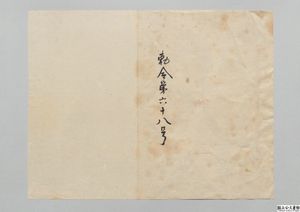 勅令第六十八号
国立公文書館